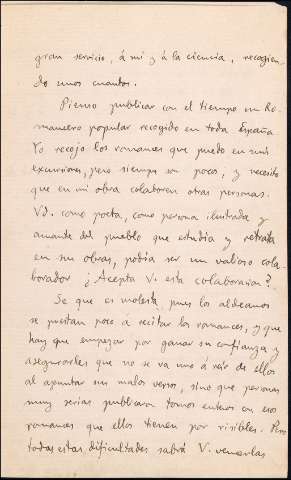 gran servicio, á mi y á la ciencia, recogien-
do unos cuantos.
Pienso publicar con el tiempo un Ro-
mancero popular recogido en toda España
Yo recojo los romances que puedo en mis
excursiones, pero siempre son pocos, y necesito
que en mi obra colaboren otras personas.
Vd. como poeta, como persona ilustrada y
amante del pueblo que estudia y retrata
en sus obras, podria ser un valioso cola-
borador ¿Acepta V. esta colaboracion?.
Se que es molesta, pues los aldeanos
se prestan poco á recitar los romances, y que
hay que empezar por ganar su confianza y
asegurarles que no se va uno á reir de ellos
al apuntar sus malos versos, sino que personas
muy serias publicaron tomos enteros con esos
romances que ellos tienen por risibles. Pero
todas estas dificultades sabrá V. vencerlas